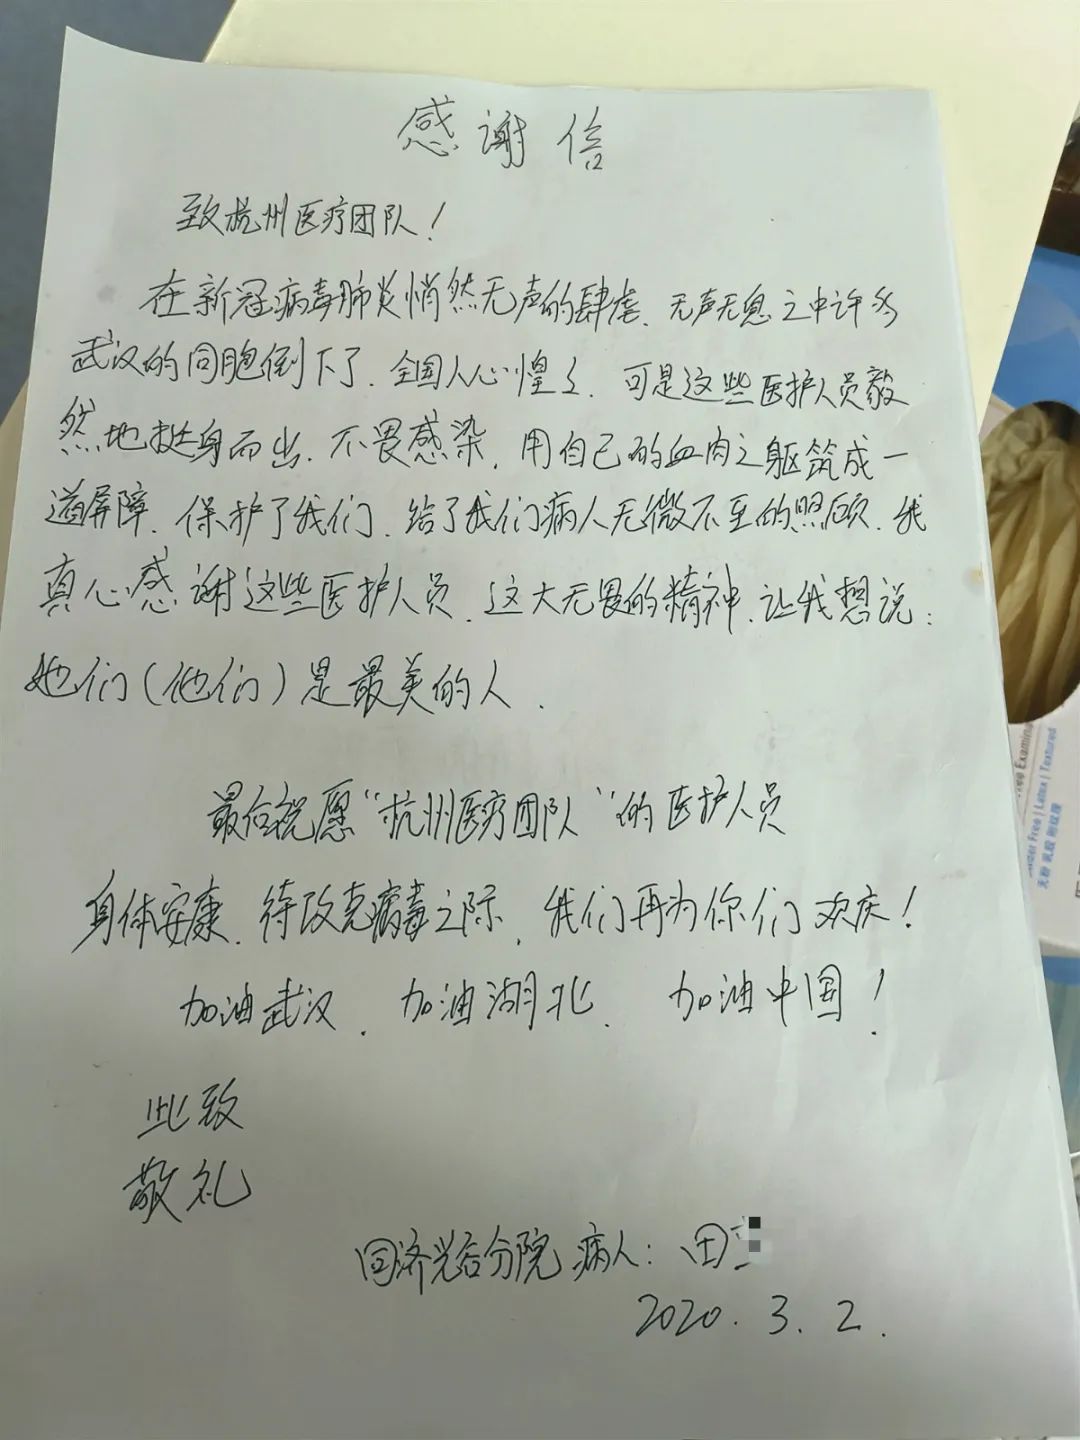 感谢信
致杭州医疗团队！
在新冠病毒肺炎悄然无声的肆虐.无声无息之中许多
武汉的同胞倒下了.全国人心惶々.可是这些医护人员毅
然地挺身而出.不畏感染,用自己的血肉之躯筑成一
道屏障.保护了我们.给了我们病人无微不至的照顾.我
真心感谢这些医护人员.这大无畏的精神.让我想说:
她们(他们)是最美的人.
最后祝愿“杭州医疗团队”的医护人员
身体安康.待攻克病毒之际,我们再为你们欢庆!
加油武汉.加油湖北.加油中国!
此致
敬礼
同济光谷分院病人:田
2020.3.2.
Free Examining
Powder Free | Latex | Textured
无粉 乳胶 附纹理